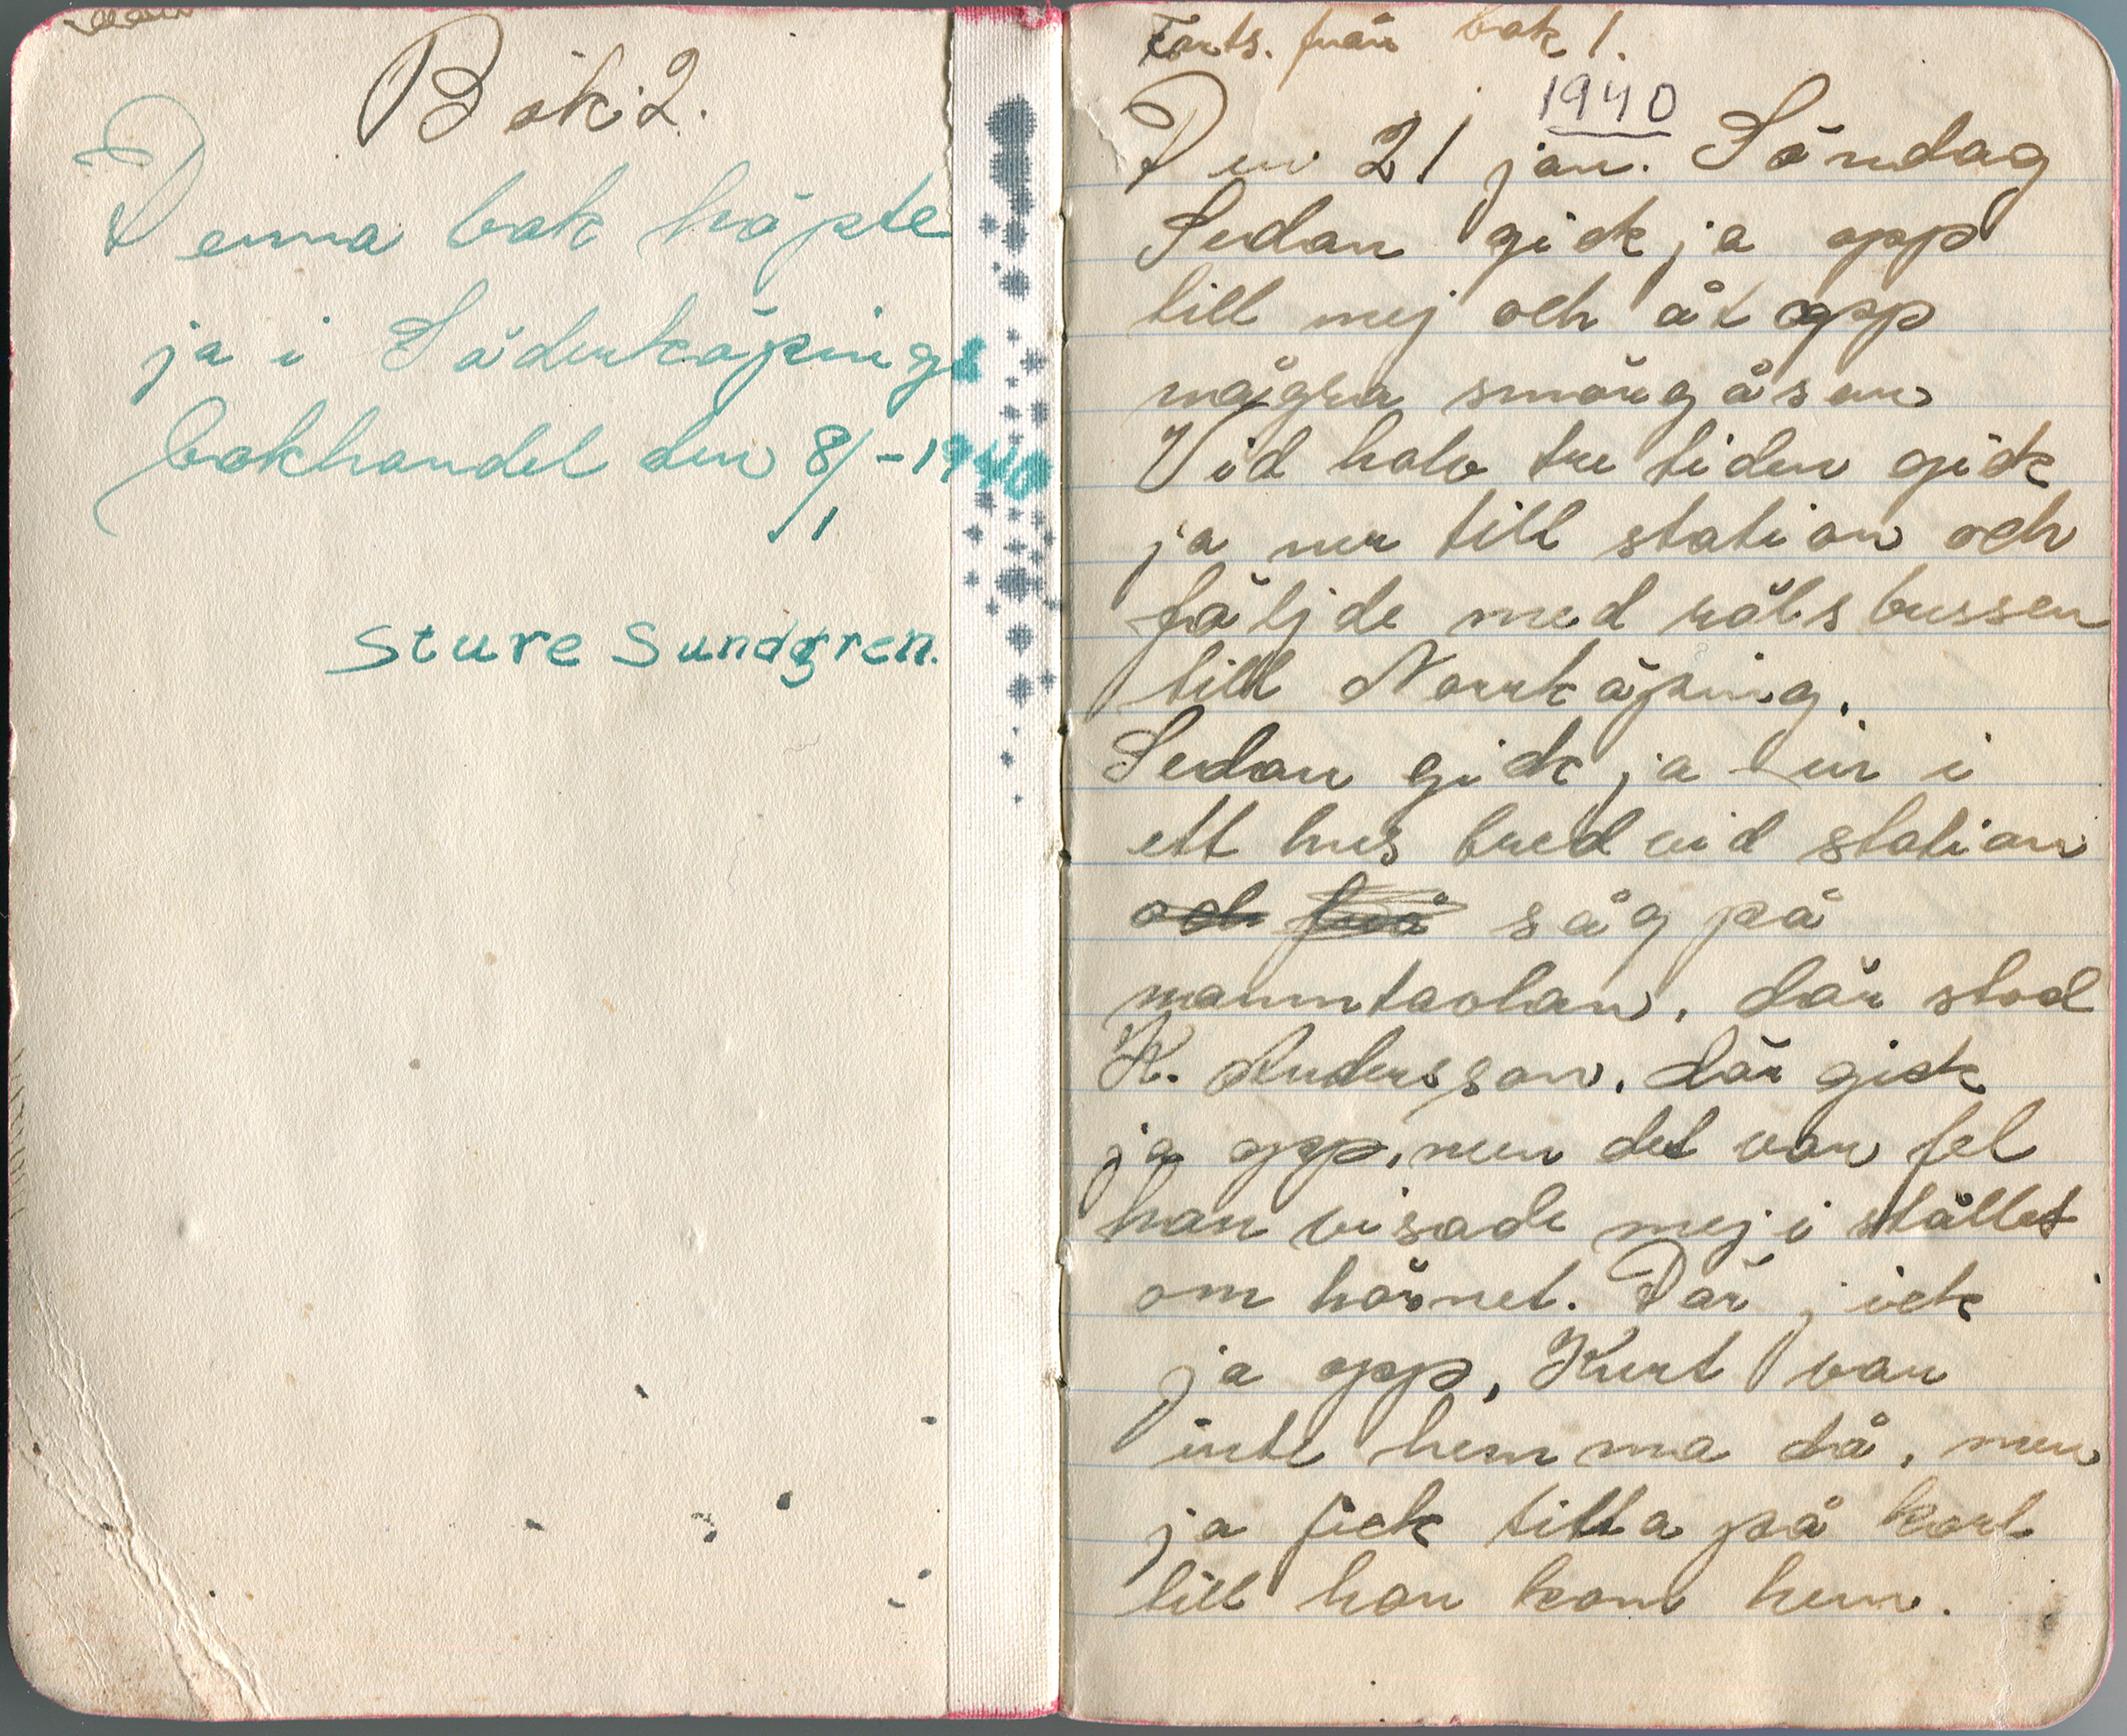 Bok 2.
Denna bok köpte
ja i Söderköpings
bokhandel den 8/1 -1940
Sture Sundgren.
Forts. från bok 1.
1940
Den 21 jan. Söndag
Sedan gick ja opp
till mej och åt opp
några smörgåsar
Vid halv tre tiden gick
ja ner till station och
följde med rälsbussen
till Norrköping.
Sedan gick ja in i
ett hus bred vid station
och såg på
namntavlan, där stod
K. Andersson. där gick
ja opp, men det var fel
han visade mej i stället
om hörnet. Där jick
ja opp, Kurt var
inte hemma då, men
ja fick titta på kort
till han kom hem.